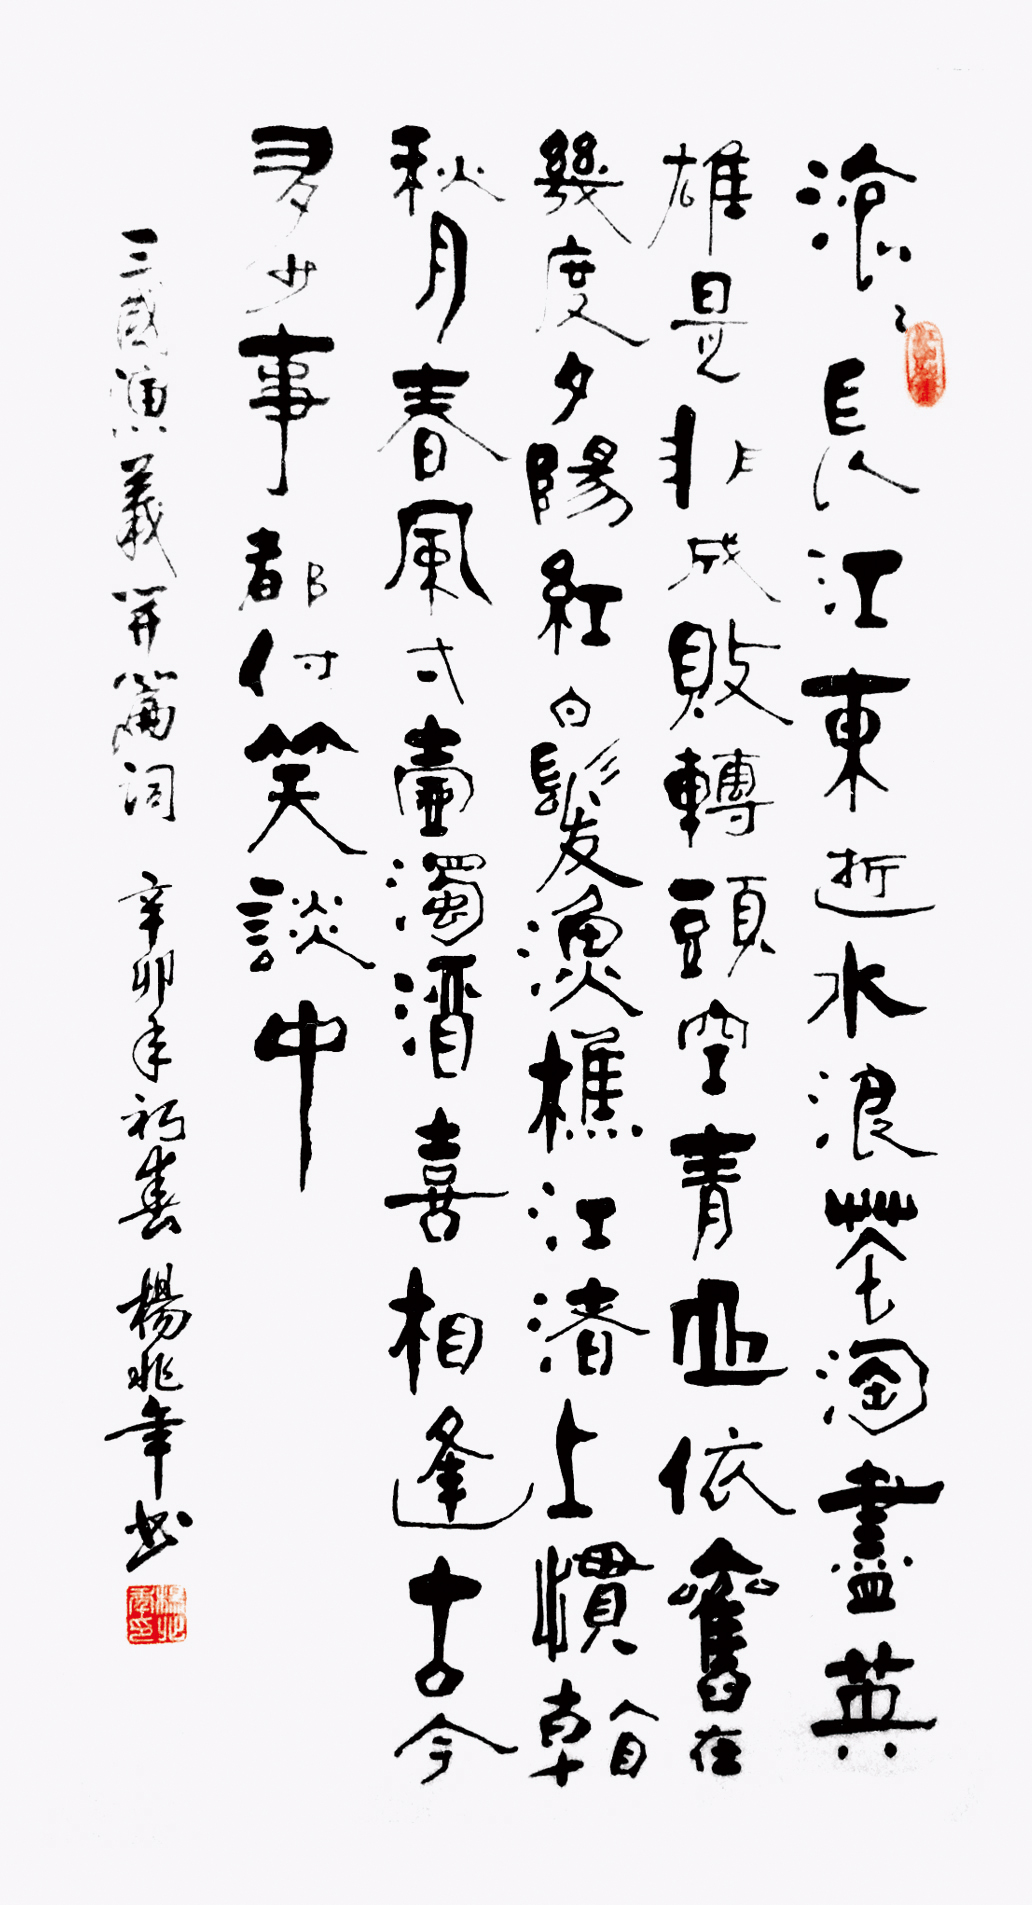 滾〻長江東逝水浪花淘盡英
雄是非成敗轉頭空青山依舊在
幾度夕陽紅白髮漁樵江渚上慣看
秋月春風弌壺濁酒喜相逢古今
多少事都付笑談中
三國演義开篇詞 辛卯年初春 楊兆年书